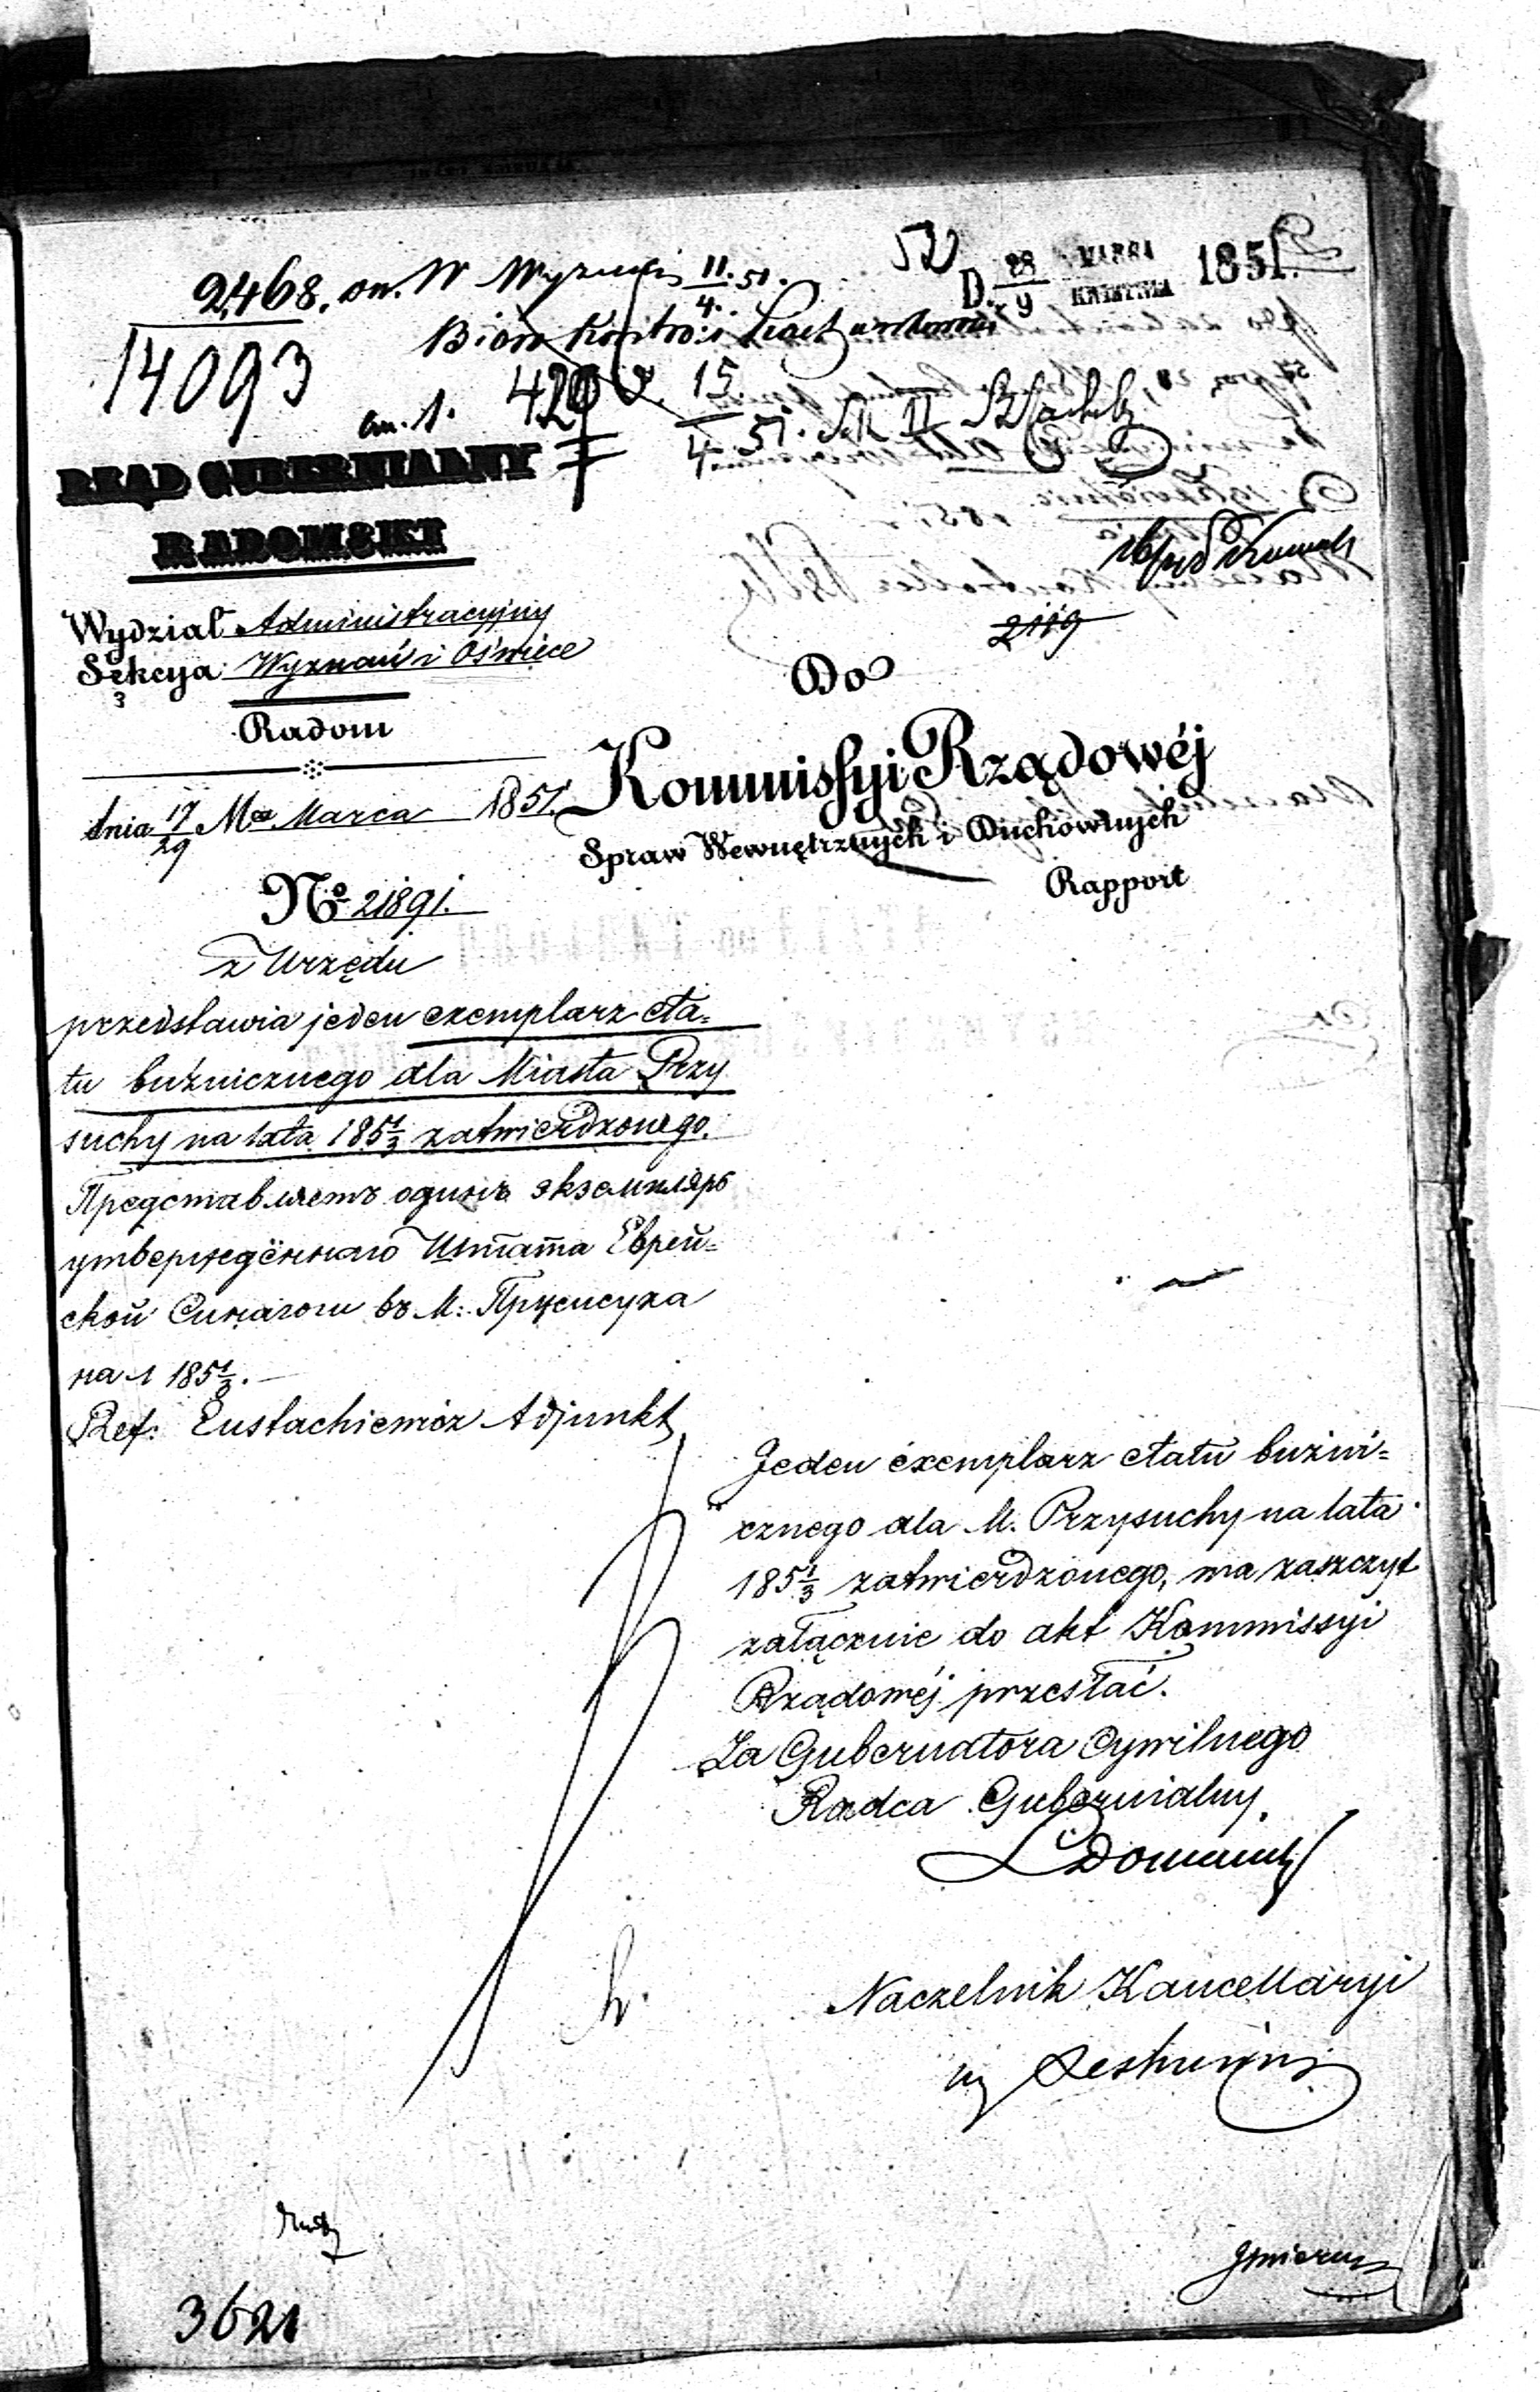 52
D. 28/9 MARCA KWIETNIA 1851.
2468. on. W Wyznań 11/4. 51.
Bióro Kontroli
14093
an. 1. 420 15/4 51.
RZĄD GUBERNIALNY
RADOMSKI
2119
Wydział Administracyjny
Sekcya Wyznań i Oświece
Radom
dnia 17/29 Mca Marca 1851.
Do
Kommissyi Rządowéj
Spraw Wewnętrznych i Duchownych
Rapport
No 21891.
z Urzędu
przedstawia jeden exemplarz eta=
tu buźnicznego dla Miasta Przy
suchy na lata 185 1/3 zatwierdzonego.
Представляетъ одинъ экземпляръ
утвержденнаго Штата Еврей=
ской Синагоги въ М: Пржисуха
на 1 185 1/3.
Ref: Eustachiewicz Adjunkt
Jeden exemplarz etatu buźni=
cznego dla M. Przysuchy na lata
185 1/3 zatwierdzonego, ma zaszczyt
załącznie do akt Kommissyi
Rządowéj przesłać.
Za Gubernatora Cywilnego
Radca Gubernialny
Naczelnik Kancellaryi
3621